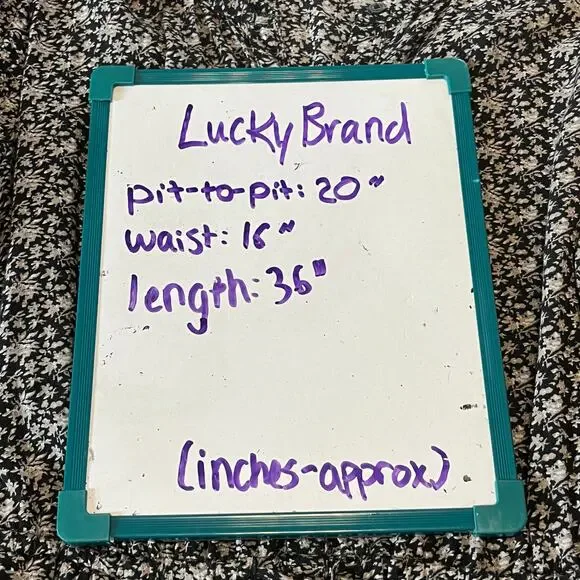 Lucky Brand
pit-to-pit: 20"
waist: 16"
length: 36"
(inches-approx.)